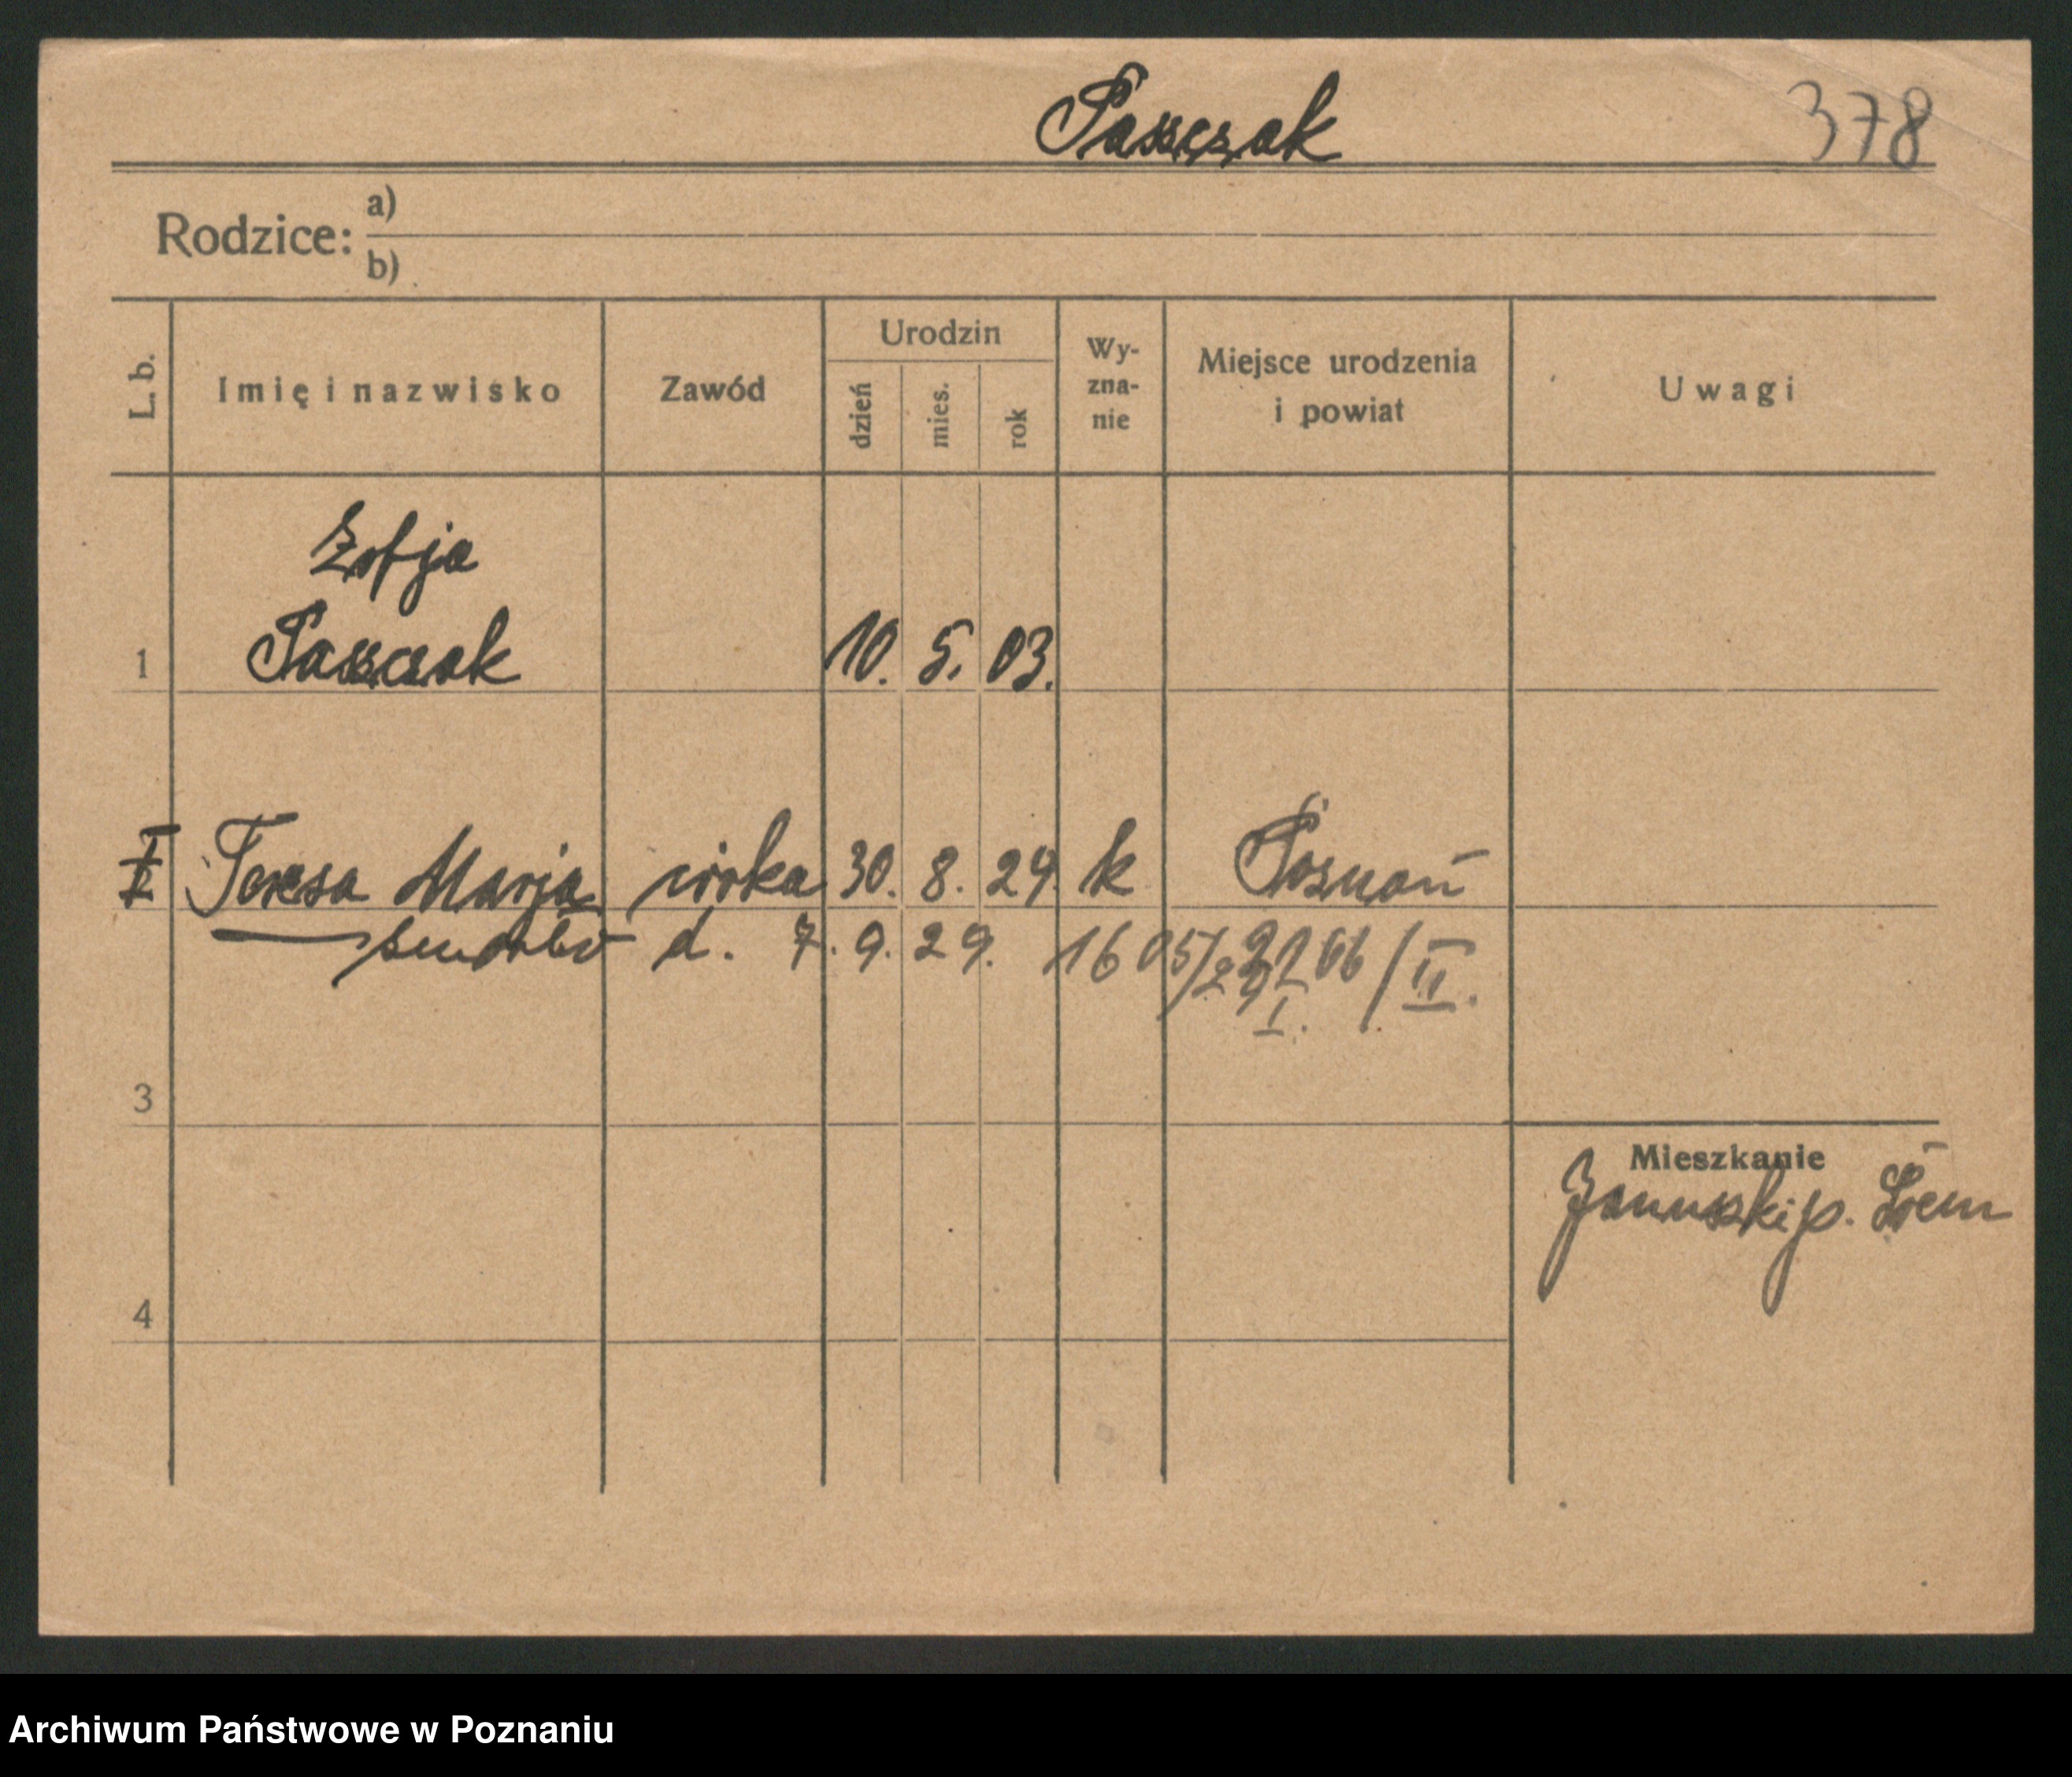 Paszczak 378
Rodzice: a)
b)
L. b. Imię i nazwisko Zawód Urodzin dzień mies. rok Wy-zna-nie Miejsce urodzenia i powiat Uwagi
Zofja
1 Paszczak 10. 5. 03.
Teresa Marja córka 30. 8. 29. k Poznań
d. 7. 9. 29. 1605/29
I. II.
3
Mieszkanie
p.
4
Archiwum Państwowe w Poznaniu